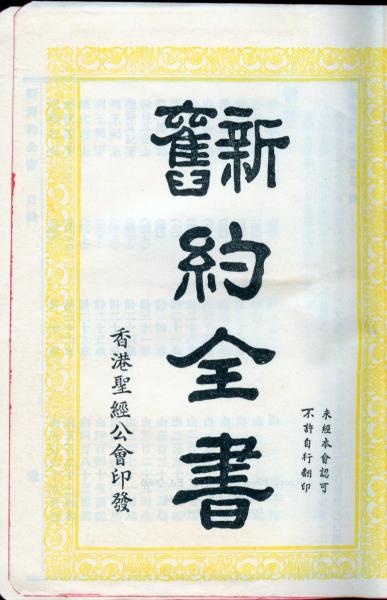 未經本會認可
不許自行翻印
新舊
約
全
書
香港聖經公會印發